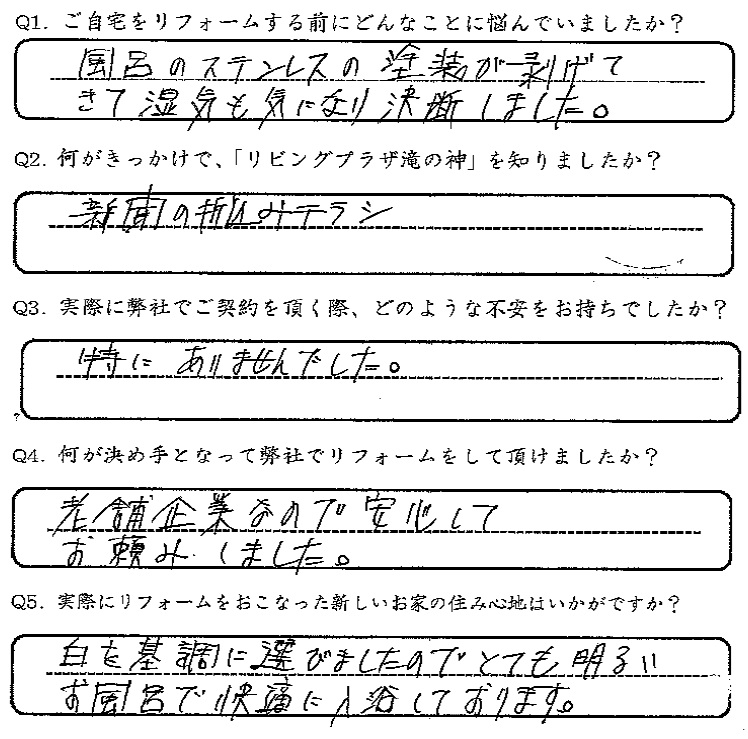 Q1. ご自宅をリフォームする前にどんなことに悩んでいましたか?
風呂のステンレスの塗装が剥げて
きて湿気も気になり決断しました。
Q2. 何がきっかけで、「リビングプラザ滝の神」を知りましたか?
新聞の折込みチラシ
Q3. 実際に弊社でご契約を頂く際、どのような不安をお持ちでしたか?
特に ありませんでした。
Q4. 何が決め手となって弊社でリフォームをして頂けましたか?
老舗企業なので安心して
お頼みしました。
Q5. 実際にリフォームをおこなった新しいお家の住み心地はいかがですか?
白を基調に選びましたのでとても明るい
お風呂で快適に入浴しております。